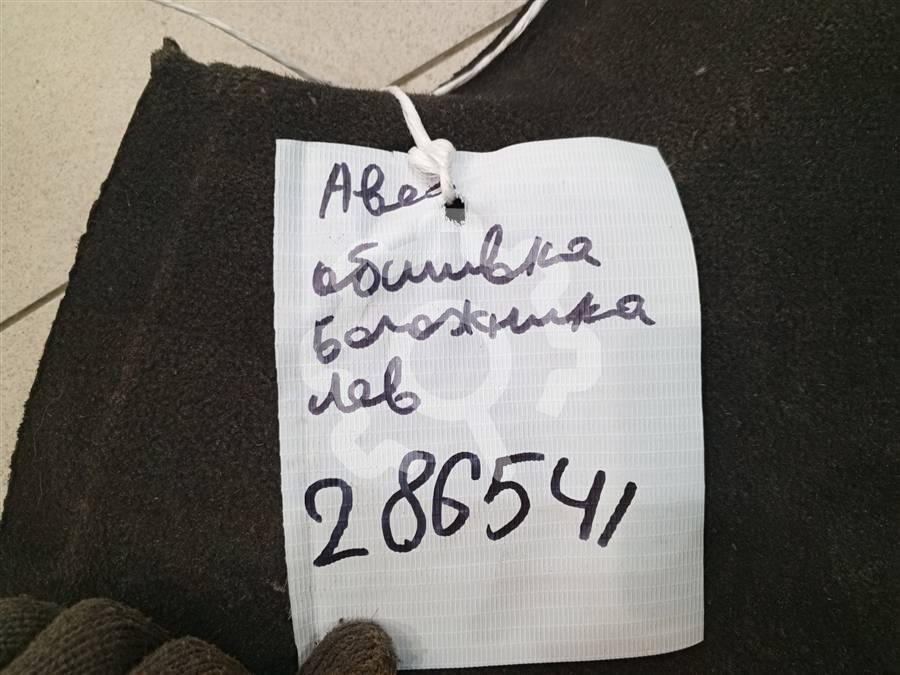 обшивка
багажника
лев
286541